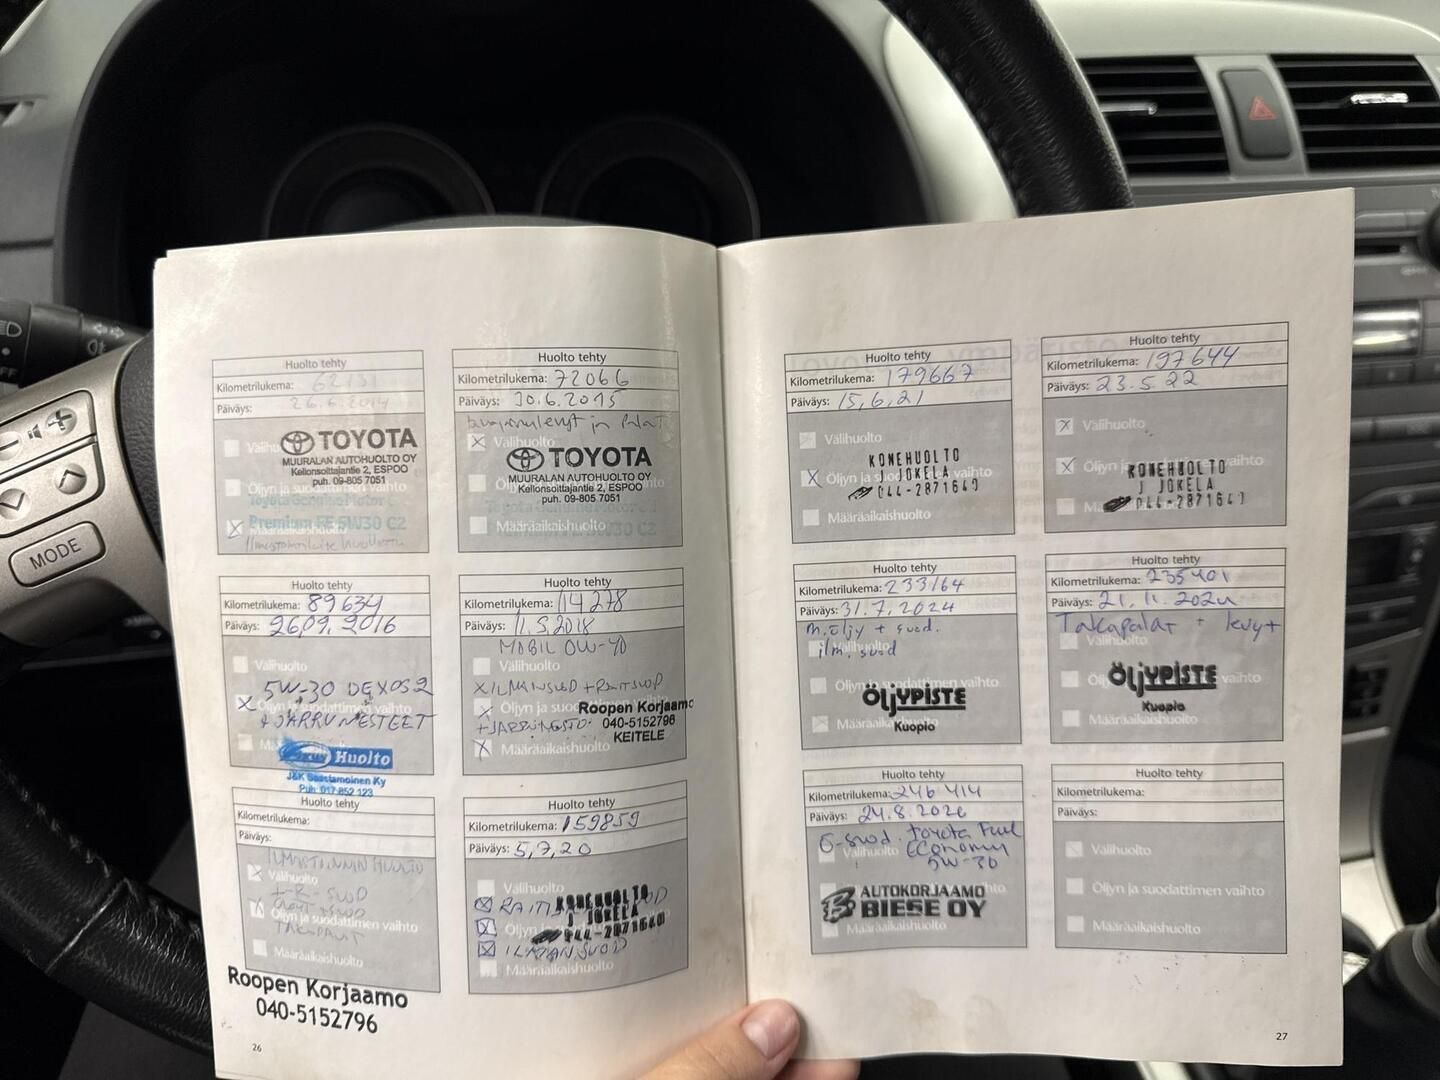 MODE
Huolto tehty
Kilometrilukema: 62131
Päiväys: 26.6.2014
Välihuolto
TOYOTA
MUURALAN AUTOHUOLTO OY
Kellonsoittajantie 2, ESPOO
puh. 09-805 7051
Öljyn ja suodattimen vaihto
Toyota Genuine Motor Oil
Premium FE 5W30 C2
Määräaikaishuolto
Huolto tehty
Kilometrilukema: 72066
Päiväys: 30.6.2015
ja Palat
Välihuolto
TOYOTA
MUURALAN AUTOHUOLTO OY
Kellonsoittajantie 2, ESPOO
puh. 09-805 7051
Määräaikaishuolto
Huolto tehty
Kilometrilukema: 89634
Päiväys: 26.09.2016
Välihuolto
5W-30 DEXOS2
Öljyn ja suodattimen vaihto
+JARRUNESTEET
Huolto
J&K Saastamoinen Ky
Puh. 017-852 123
Huolto tehty
Kilometrilukema: 114278
Päiväys: 11.5.2018
MOBIL 0W-40
Välihuolto
ILMANSUOD + RAITSUOD
Öljyn ja suodattimen vaihto
Roopen Korjaamo
040-5152796
KEITELE
Määräaikaishuolto
Huolto tehty
Kilometrilukema:
Päiväys:
ILMASTOINNIN HUOLTO
Välihuolto
+R-SUOD
Öljyn ja suodattimen vaihto
TAKAPALAT
Määräaikaishuolto
Roopen Korjaamo
040-5152796
Huolto tehty
Kilometrilukema: 159859
Päiväys: 5,7,20
Välihuolto
KONEHUOLTO
J JOKELA
044-2871640
ILMANSUOD
Määräaikaishuolto
26
Huolto tehty
Kilometrilukema: 179667
Päiväys: 15,6,21
Välihuolto
KONEHUOLTO
J JOKELA
044-2871640
Öljyn ja suodattimen vaihto
Määräaikaishuolto
Huolto tehty
Kilometrilukema: 197644
Päiväys: 23.5.22
Välihuolto
KONEHUOLTO
J JOKELA
044-2871640
Huolto tehty
Kilometrilukema: 233164
Päiväys: 31.7.2024
m.öljy + suod.
Välihuolto
ilm. suod
Öljyn ja suodattimen vaihto
ÖLJYPISTE
Kuopio
Määräaikaishuolto
Huolto tehty
Kilometrilukema: 235401
Päiväys: 21.11.2024
Takapalat + levyt
Välihuolto
ÖLJYPISTE
Kuopio
Öljyn ja suodattimen vaihto
Määräaikaishuolto
Huolto tehty
Kilometrilukema: 246414
Päiväys: 24.8.2026
Ö-suod. Toyota Fuel
Välihuolto Economy
5W-30
AUTOKORJAAMO
BIESE OY
Määräaikaishuolto
Huolto tehty
Kilometrilukema:
Päiväys:
Välihuolto
Öljyn ja suodattimen vaihto
Määräaikaishuolto
27